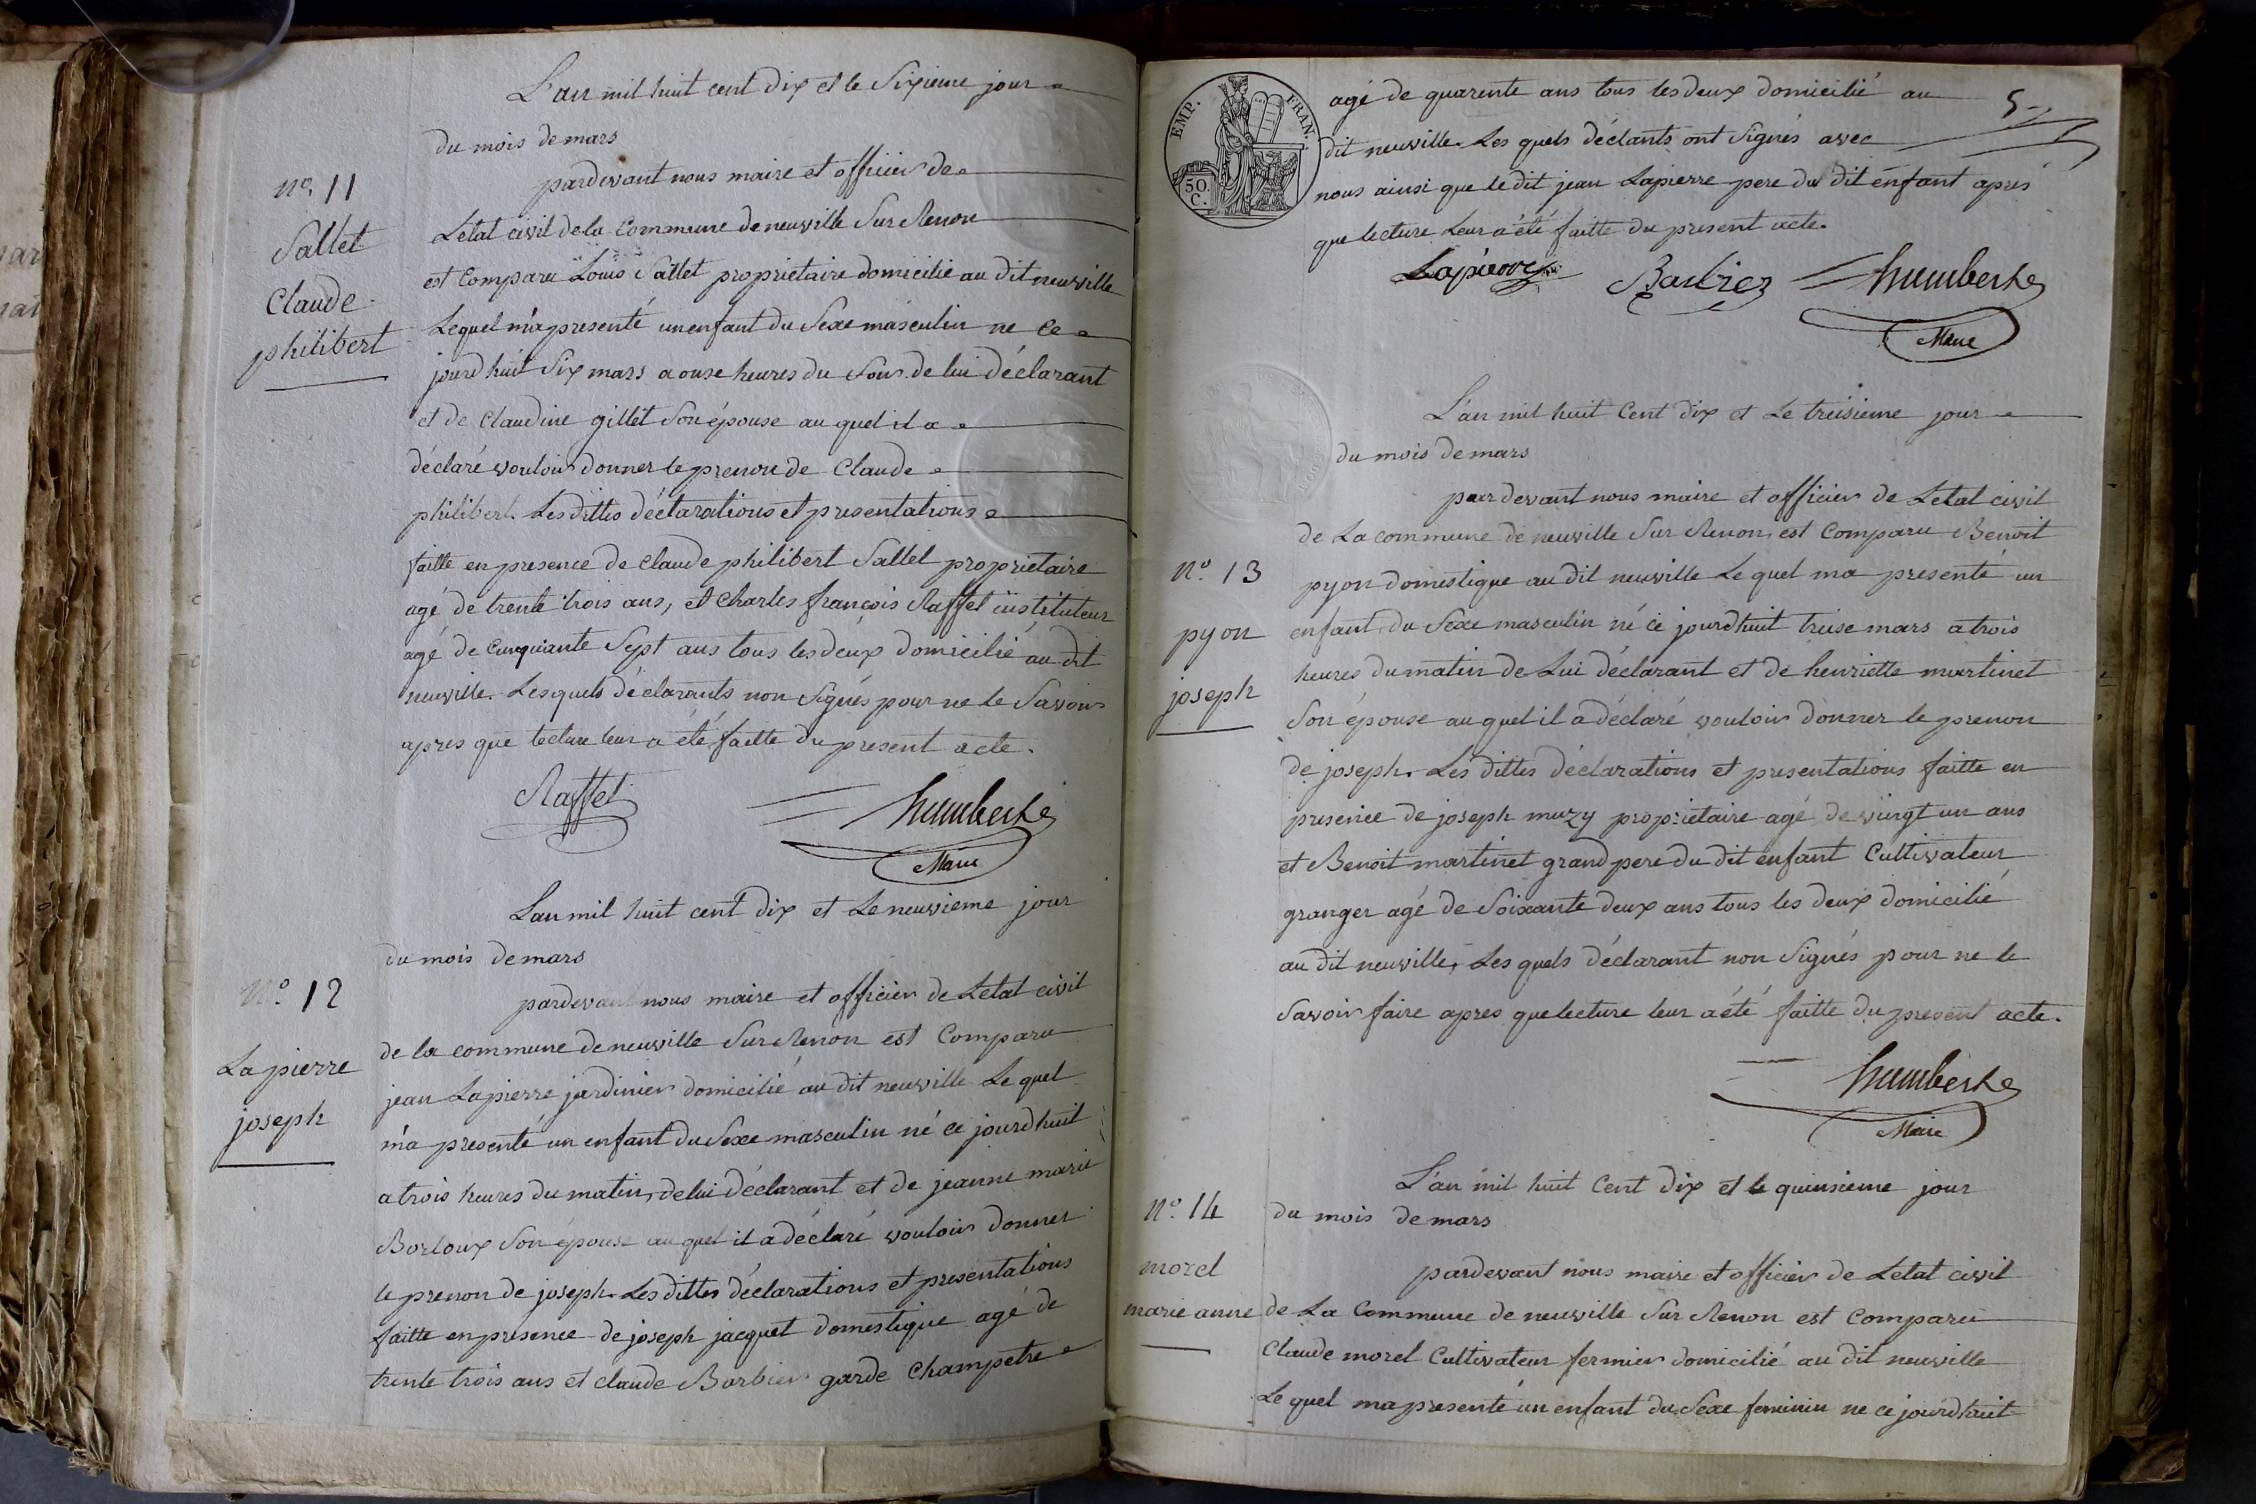 L'an mil huit cent dix et le Sixieme jour
du mois de mars
pardevant nous maire et officier de
Letat civil de la Commune de neuville Sur Renon
est Comparu Louis Sallet proprietaire domicilie au dit neuville
Lequel m'a presenté un enfant du Sexe masculin ne ce
jourdhuit Six mars a onse heures du Soir de lui déclarant
et de Claudine gillet Son épouse au quel il a
déclaré vouloir donner le prenon de Claude
philibert. Les dittes déclarations et presentations
faitte en presence de claude philibert Sallet proprietaire
agé de trente trois ans, et Charles françois Raffet instituteur
agé de Cinquante Sept ans tous les deux domicilié au dit
neuville. Lesquels déclarants non Signés pour ne le Savoir
apres que lecture leur a été faitte du present acte.
Raffet humbert
Maire
Nº 11
Sallet
Claude
philibert
L'an mil huit cent dix et Le neuvieme jour
du mois de mars
pardevant nous maire et officier de Letat civil
de la commune de neuville Sur Renon est Comparu
jean Lapierre jardinier domicilié au dit neuville Le quel
m'a presenté un enfant du Sexe masculin né ce jourdhuit
a trois heures du matin, de lui déclarant et de jeanne marie
Borloux Son épouse au quel il a déclaré vouloir donner
le prenon de joseph. Les dittes déclarations et presentations
faitte en presence de joseph jacquet domestique agé de
trente trois ans et claude Barbier garde Champetre
Nº 12
La pierre
joseph
EMP. FRAN.
50. C.
5
agé de quarente ans tous les deux domicilié au
dit neuville. Les quels déclants ont Signés avec
nous ainsi que le dit jean Lapierre pere du dit enfant apres
que lecture Leur a été faitte du present acte.
Lapierre Barbier humbert
Maire
L'an mil huit Cent dix et Le treisieme jour
du mois de mars
par devant nous maire et officier de Letat civil
de La commune de neuville Sur Renon, est Comparu Benoit
pyon domestique au dit neuville Le quel ma presenté un
enfant du Sexe masculin né ce jourdhuit treise mars a trois
heures du matin de Lui déclarant et de henriette martinet
Son épouse au quel il a déclaré vouloir donner le prenon
de joseph. Les dittes déclarations et presentations faitte en
presence de joseph muzy proprietaire agé de vingt un ans
et Benoit martinet grand pere du dit enfant Cultivateur
granger agé de Soixante deux ans tous les deux domicilié
au dit neuville, Les quels déclarant non Signés pour ne le
Savoir faire apres que lecture leur a été faitte du present acte.
humbert
Maire
Nº 13
pyon
joseph
L'an mil huit Cent dix et le quinsieme jour
du mois de mars
pardevant nous maire et officier de Letat civil
de La Commune de neuville Sur Renon est Comparu
Claude morel Cultivateur fermier domicilié au dit neuville
Le quel ma presenté un enfant du Sexe feminin ne ce jourdhuit
Nº 14
morel
marie anne